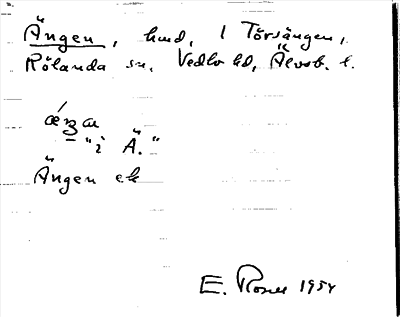 Ängen, hmd, 1 Törsängen,
Rölanda sn, Vedbo hd, Älvsb. l.
"i Ä."
Ängen ek
E. Rosell 1954